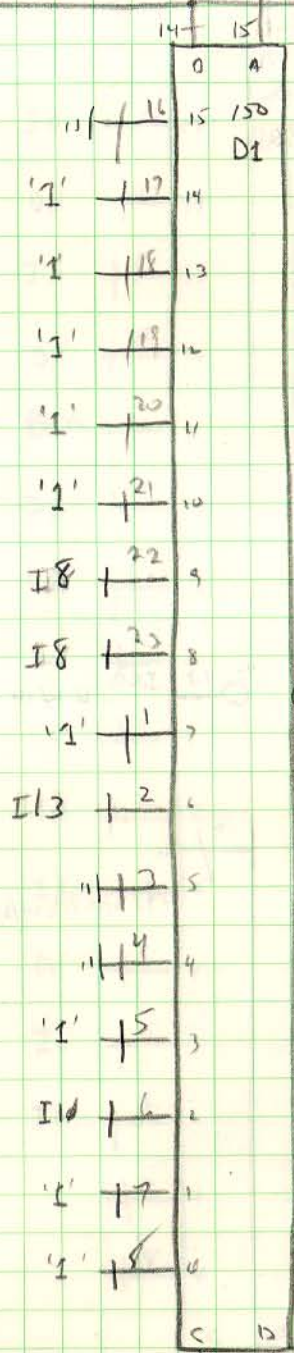 14 15
B A
16 15 150
D1
'1' 17 14
'1' 18 13
'1' 19 12
'1' 20 11
'1' 21 10
I8 22 9
I8 23 8
'1' 1 7
I13 2 6
3 5
4 4
'1' 5 3
6 2
'1' 7 1
'1' 8 0
C D